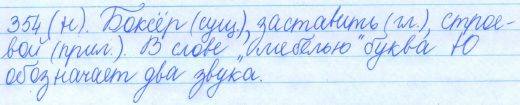 354 (н). Боксёр (сущ), заставить (гл.), строе-
вой (прил.). В слове „мебелью" буква Ю
обозначает два звука.